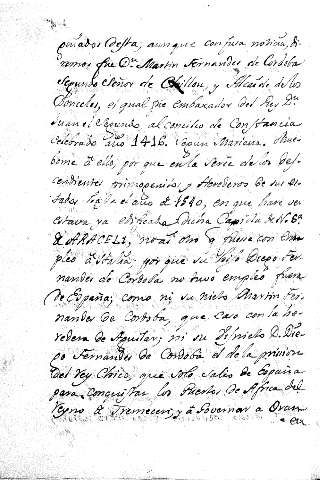 pasados desta, aunque confusa noticia, di-
remos fue Dn. Martin Fernandes de Cordoba
segundo señor de Chillon, y Alcaide de los
Donceles, el qual fue embaxador del Rey Dn.
Juan el Segundo, al concilio de Constancia
celebrado año 1416. segun Mariana. Mue-
beme à ello, por que en la serie de los des-
cendientes primogenitos, y Herederos de su es-
tado, hasta el año de 1540, en que
estava ya edificada dicha Capilla de N. Sª.
de ARACELI, no ai otro q fuese con em-
pleo à Italia. por que su Hijo Diego Fer-
nandes de Cordoba no tuvo empleo fuera
de España; como ni su nieto Martin Fer-
nandes de Cordoba, que caso con la he-
redera de Aguilar; ni su Bisnieto D. Die-
go Fernandes de Cordoba el de la prision
del Rey Chico, que solo salio de España
para conquistar los Puertos de Africa del
Reyno de Tremecen, y à Governar a Oran
en